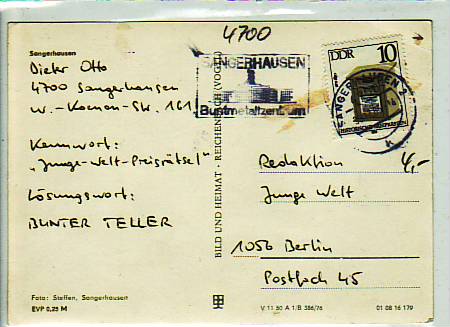 4700
Sangerhausen
Dieter Otto
4700 Sangerhausen
W.-Koenen-Str. 161
Kennwort:
"Junge-Welt-Preisrätsel"
Lösungswort:
BUNTER TELLER
Foto: Steffen, Sangerhausen
EVP 0,25 M
BILD UND HEIMAT · REICHENBACH (VOGTL)
SANGERHAUSEN
Buntmetallzentrum
DDR 10
SANGERHAUSEN 2
4,-
Redaktion
Junge Welt
1056 Berlin
Postfach 45
V 11 50 A 1/B 386/76
01 08 16 179